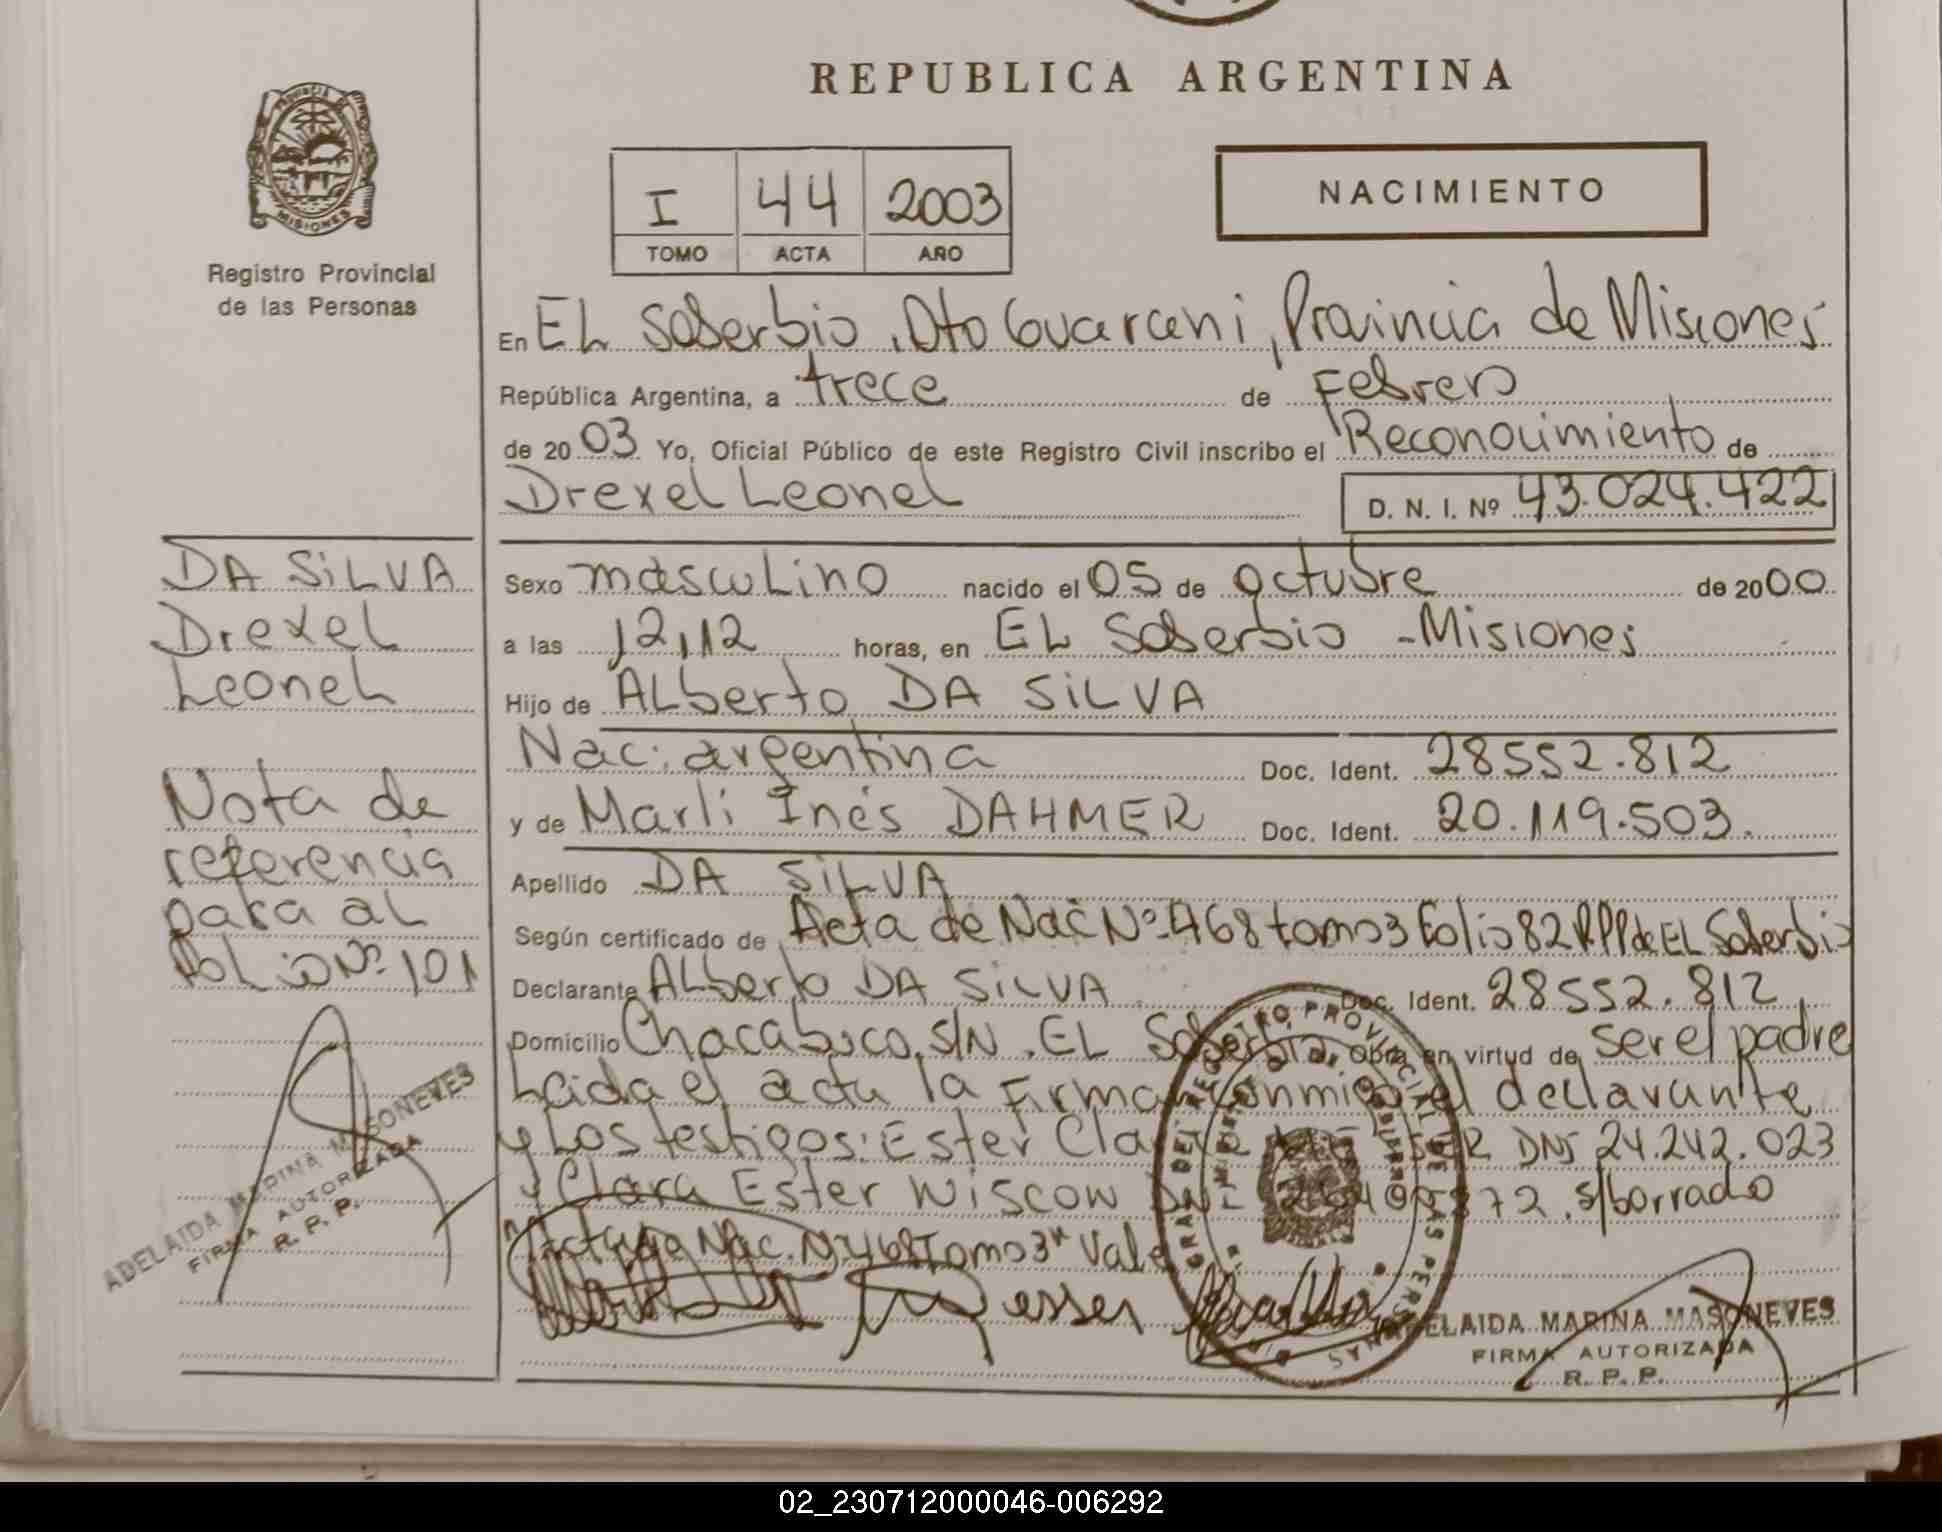 REPUBLICA ARGENTINA
PROVINCIA DE
MISIONES
Registro Provincial
de las Personas
I 44 2003
TOMO ACTA AÑO
NACIMIENTO
En EL Soberbio, Dto Guarani, Provincia de Misiones
República Argentina, a trece de Febrero
de 2003 Yo, Oficial Público de este Registro Civil inscribo el Reconocimiento de
Drexel Leonel D. N. I. Nº 43.024.422
DA SILVA
Drexel
Leonel
Sexo masculino nacido el 05 de octubre de 2000
a las 12,12 horas, en EL Soberbio - Misiones
Hijo de Alberto DA SILVA
Nac: argentina Doc. Ident. 28552.812
y de Marli Inés DAHMER Doc. Ident. 20.119.503.
Nota de
referencia
para al
Folio Nº 101
Apellido DA SILVA
Según certificado de Acta de Nac Nº 468 tomo3 Folio 82 RPP de EL Soberbio
Declarante Alberto DA SILVA Doc. Ident. 28552.812,
Domicilio Chacabuco, S/N. EL Soberbio Obra en virtud de ser el padre
Leida el acta la Firma conmigo el declarante
y Los testigos: Ester DNI 24.242.023
y Clara Ester Wiscow DNI s/borrado
Nac. Nº 468 Tomo 3" Vale
ADELAIDA MARINA MASONEVES
FIRMA AUTORIZADA
R. P. P.
ADELAIDA MARINA MASONEVES
FIRMA AUTORIZADA
R. P. P.
02_230712000046-006292